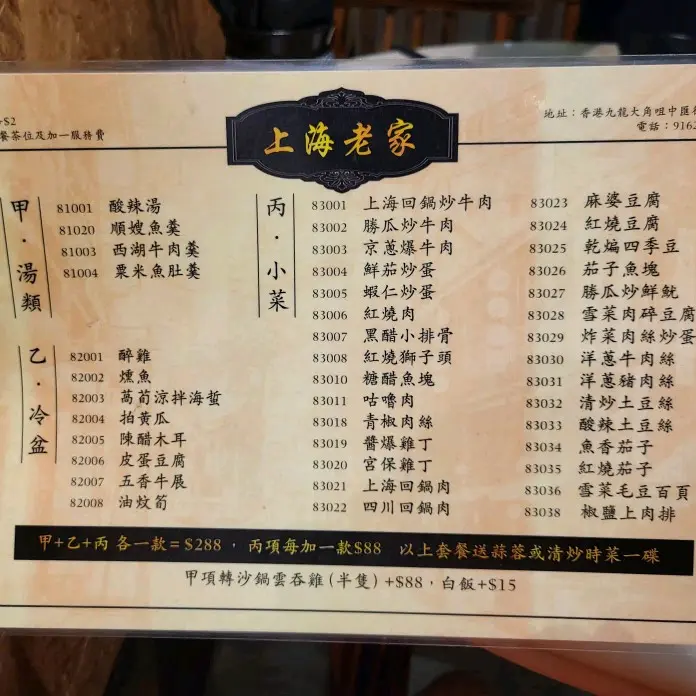 +$2
餐茶位及加一服務費
上海老家
地址：香港九龍大角咀中匯
電話：9162
甲・湯類
81001 酸辣湯
81020 順嫂魚羹
81003 西湖牛肉羹
81004 粟米魚肚羹
乙・冷盆
82001 醉雞
82002 燻魚
82003 萵荀涼拌海蜇
82004 拍黃瓜
82005 陳醋木耳
82006 皮蛋豆腐
82007 五香牛展
82008 油炆筍
丙・小菜
83001 上海回鍋炒牛肉
83002 勝瓜炒牛肉
83003 京蔥爆牛肉
83004 鮮茄炒蛋
83005 蝦仁炒蛋
83006 紅燒肉
83007 黑醋小排骨
83008 紅燒獅子頭
83010 糖醋魚塊
83011 咕嚕肉
83018 青椒肉絲
83019 醬爆雞丁
83020 宮保雞丁
83021 上海回鍋肉
83022 四川回鍋肉
83023 麻婆豆腐
83024 紅燒豆腐
83025 乾煸四季豆
83026 茄子魚塊
83027 勝瓜炒鮮魷
83028 雪菜肉碎豆腐
83029 炸菜肉絲炒蛋
83030 洋蔥牛肉絲
83031 洋蔥豬肉絲
83032 清炒土豆絲
83033 酸辣土豆絲
83034 魚香茄子
83035 紅燒茄子
83036 雪菜毛豆百頁
83038 椒鹽上肉排
甲+乙+丙 各一款=$288，丙項每加一款$88 以上套餐送蒜蓉或清炒時菜一碟
甲項轉沙鍋雲吞雞(半隻)+$88，白飯+$15